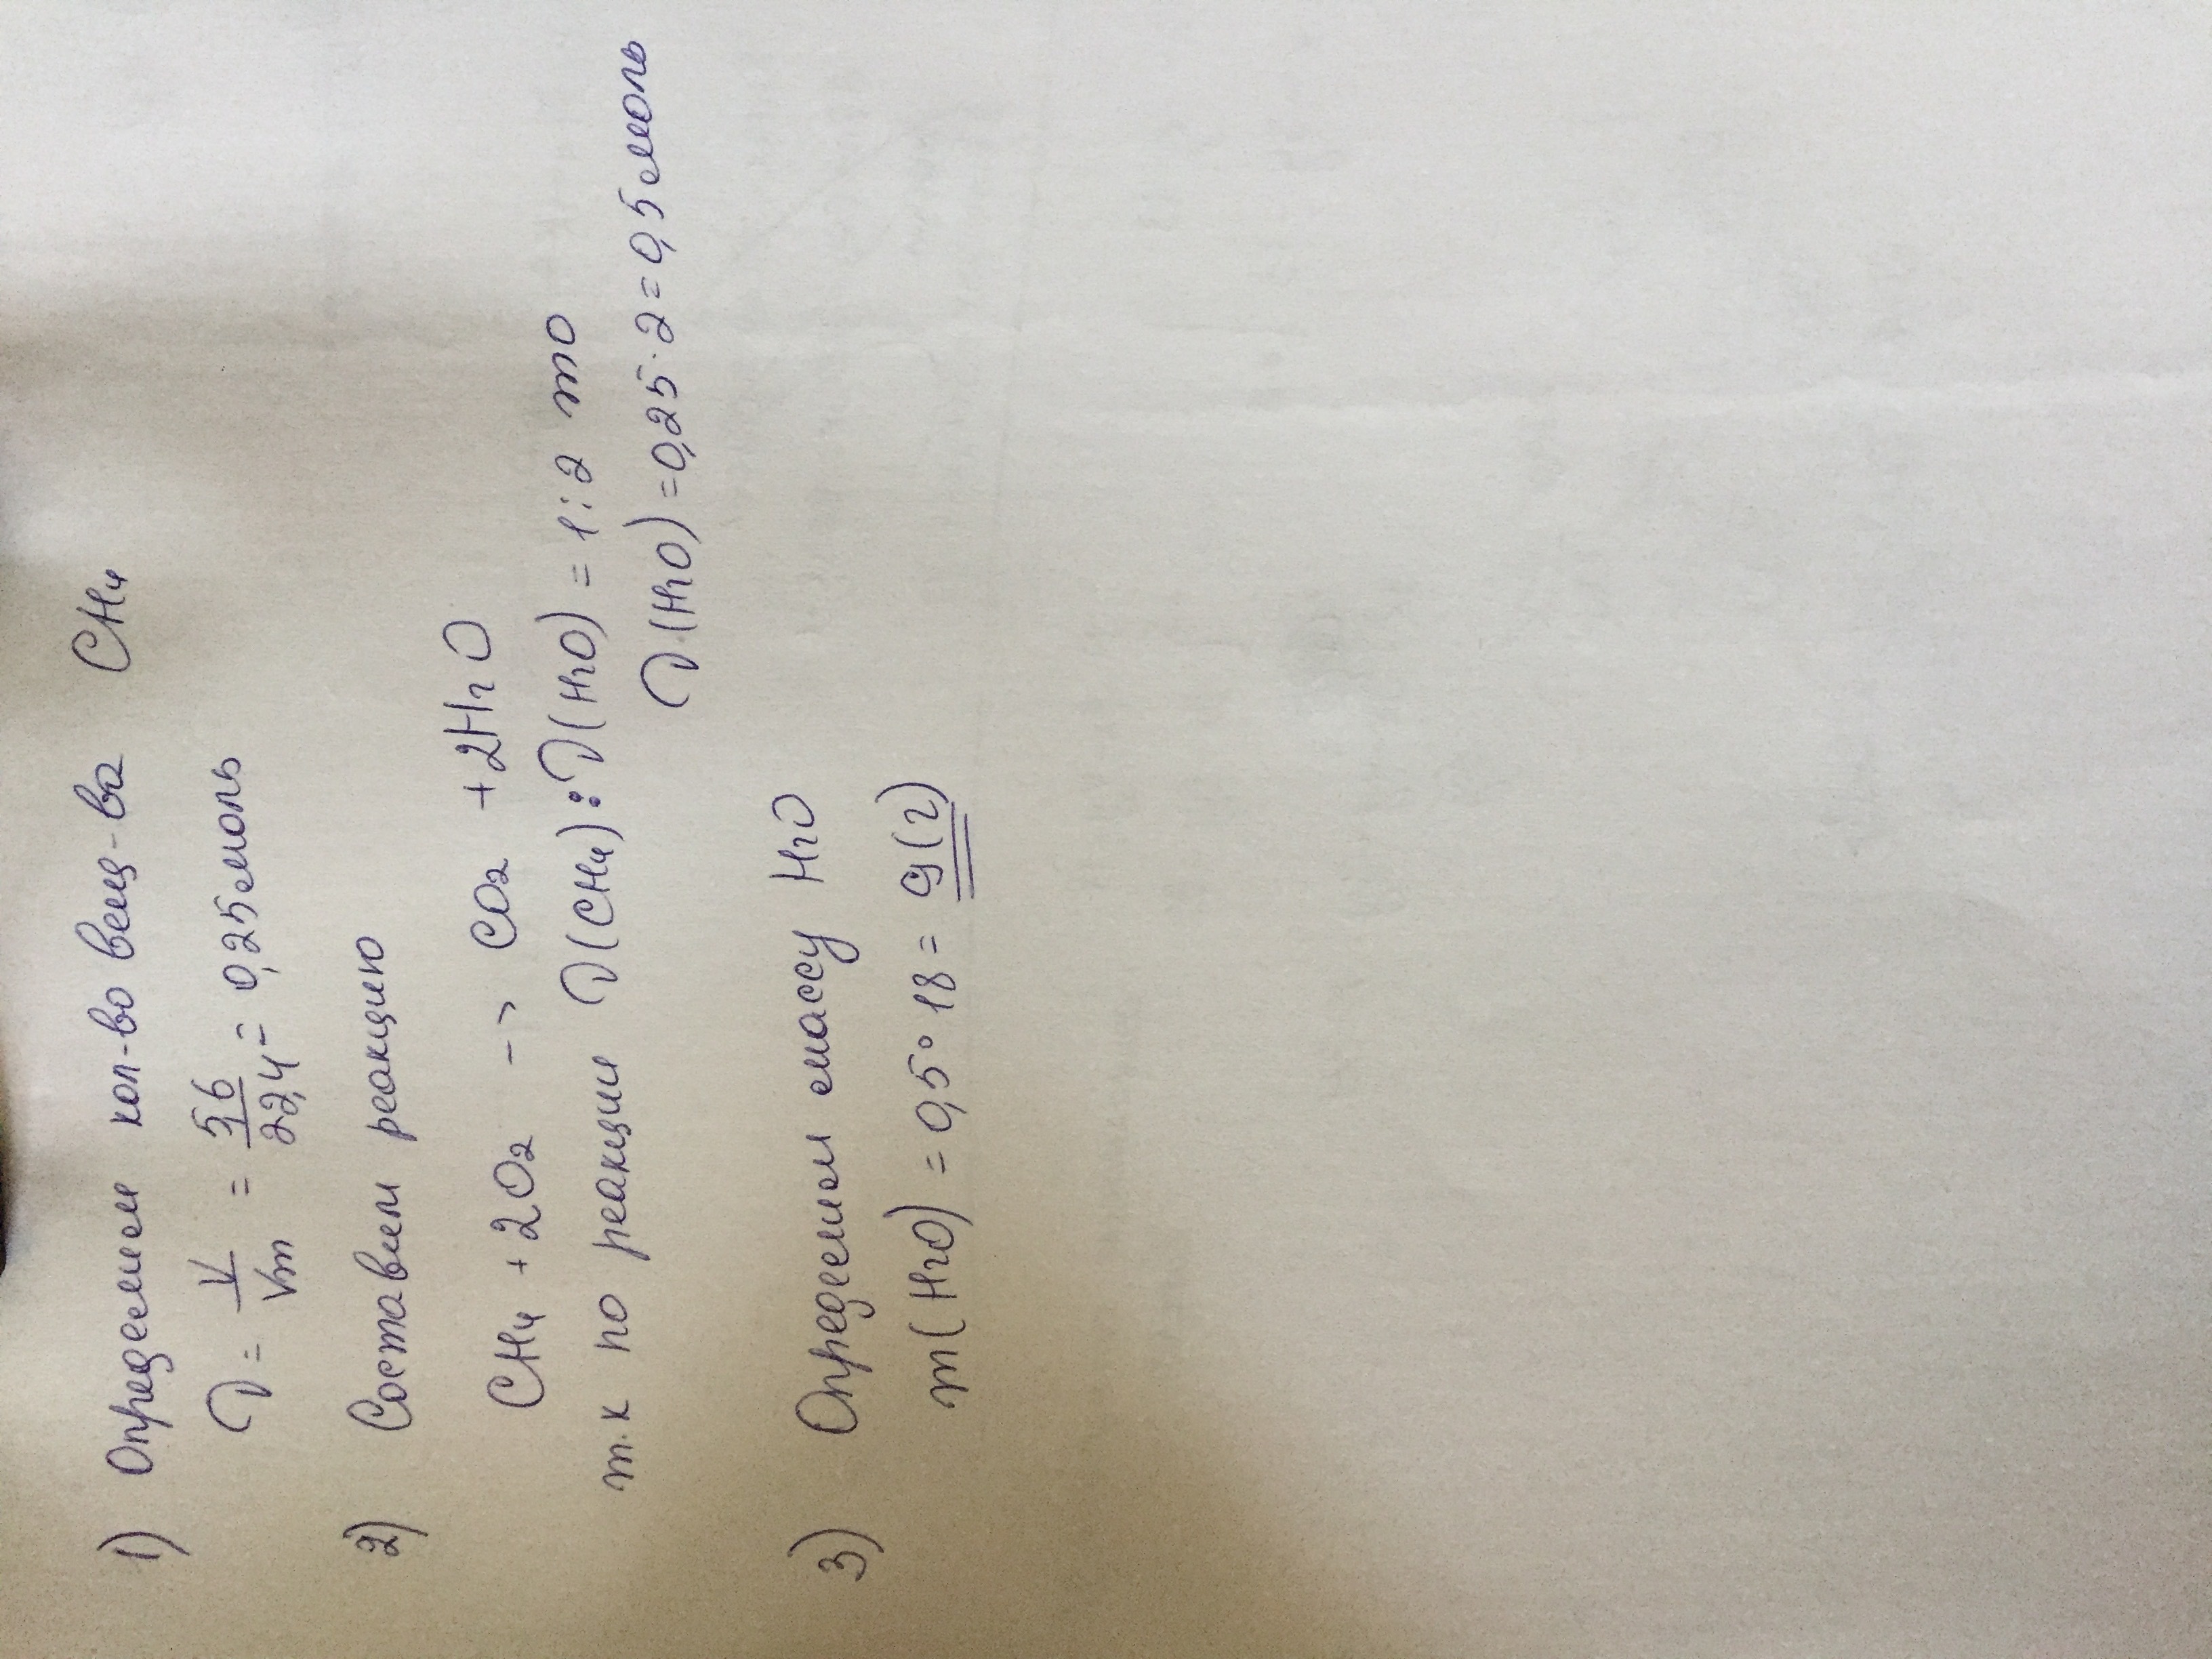 1) Определим кол-во вещ-ва CH₄
ν = V/Vm = 5,6/22,4 = 0,25 моль
2) Составим реакцию
CH₄ + 2O₂ -> CO₂ + 2H₂O
т.к по реакции ν(CH₄) : ν(H₂O) = 1:2 то
ν(H₂O) = 0,25·2 = 0,5 моль
3) Определим массу H₂O
m(H₂O) = 0,5·18 = 9(г)